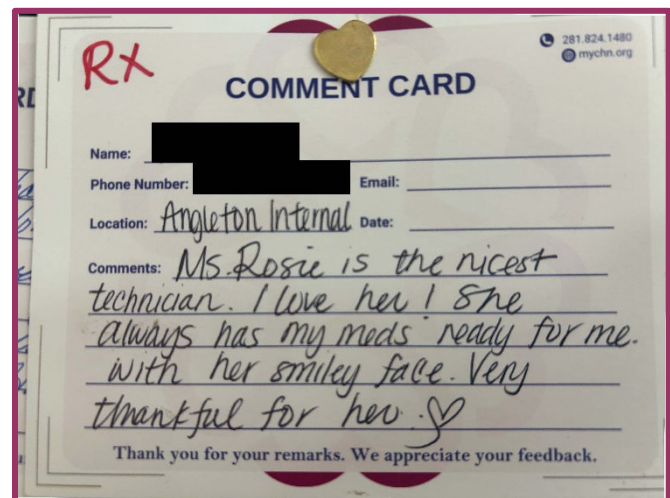 RX
281.824.1480
mychn.org
COMMENT CARD
Name:
Phone Number: Email:
Location: Angleton Internal Date:
Comments: Ms. Rosie is the nicest
technician. I love her! She
always has my meds ready for me.
with her smiley face. Very
thankful for her.
Thank you for your remarks. We appreciate your feedback.